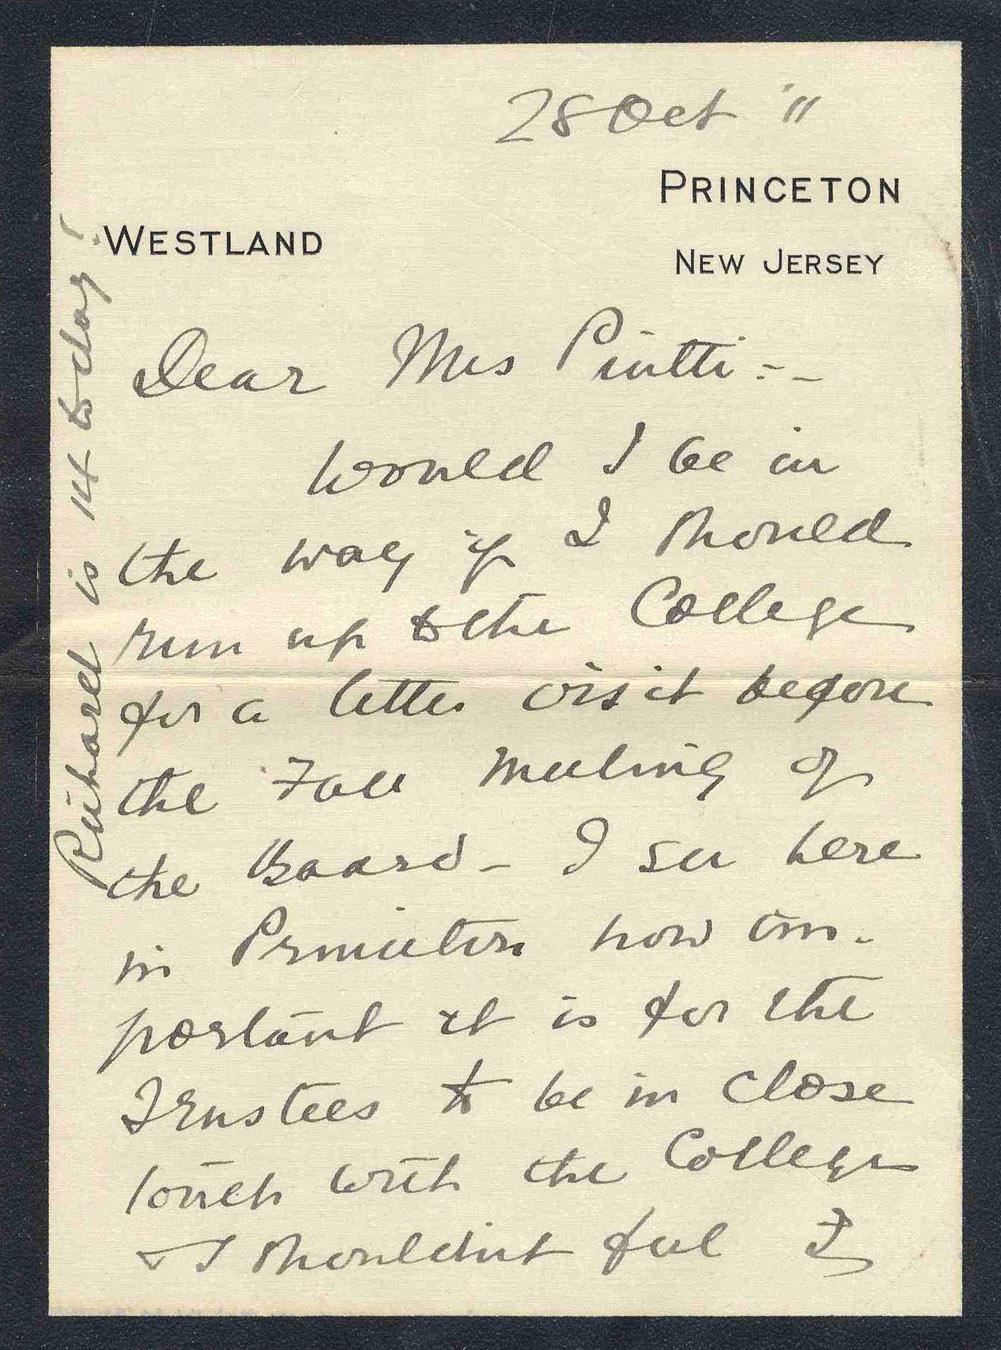 28 Oct '11
PRINCETON
NEW JERSEY
WESTLAND
Dear Mrs Piutti :--
Would I be in
the way if I should
run up to the College
for a little visit before
the Fall meeting of
the Board - I see here
in Princeton how im-
portant it is for the
Trustees to be in close
touch with the College
& I shouldn't feel I
Richard is 14 to-day!